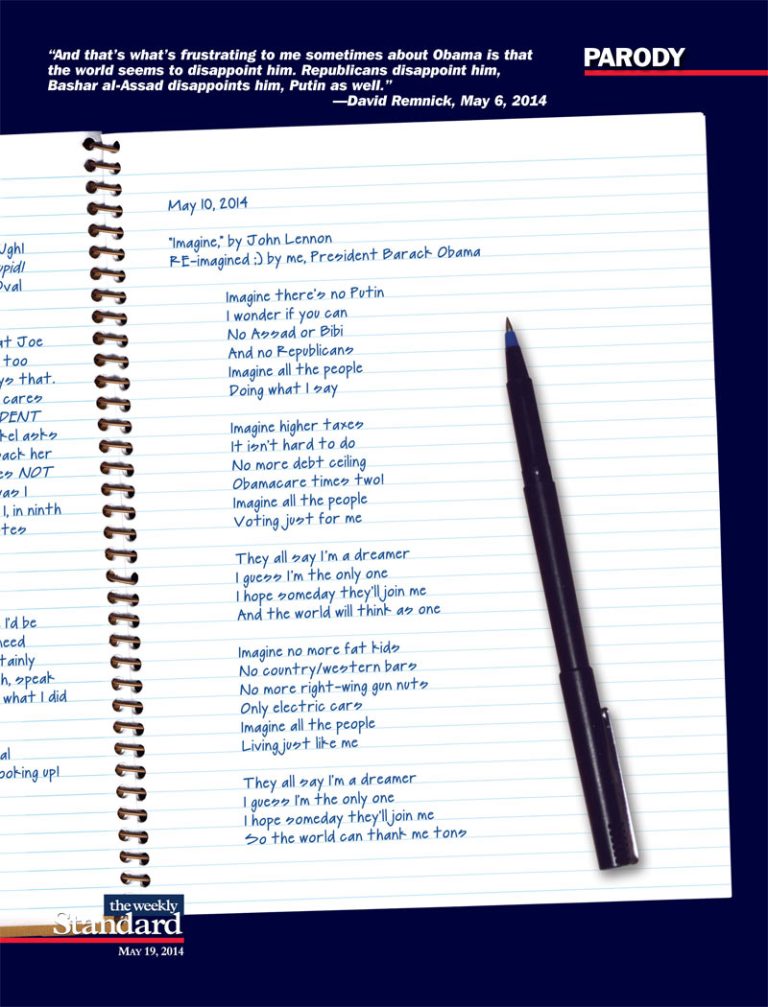 “And that’s what’s frustrating to me sometimes about Obama is that
the world seems to disappoint him. Republicans disappoint him,
Bashar al-Assad disappoints him, Putin as well.”
—David Remnick, May 6, 2014
PARODY
Ugh!
upid!
Oval
at Joe
too
ys that.
cares
DENT
kel asks
ack her
es NOT
was I
I, in ninth
tes
I'd be
need
tainly
h, speak
what I did
al
ooking up!
May 10, 2014
"Imagine," by John Lennon
RE-imagined ;) by me, President Barack Obama
Imagine there's no Putin
I wonder if you can
No Assad or Bibi
And no Republicans
Imagine all the people
Doing what I say
Imagine higher taxes
It isn't hard to do
No more debt ceiling
Obamacare times two!
Imagine all the people
Voting just for me
They all say I'm a dreamer
I guess I'm the only one
I hope someday they'll join me
And the world will think as one
Imagine no more fat kids
No country/western bars
No more right-wing gun nuts
Only electric cars
Imagine all the people
Living just like me
They all say I'm a dreamer
I guess I'm the only one
I hope someday they'll join me
So the world can thank me tons
the weekly
Standard
MAY 19, 2014